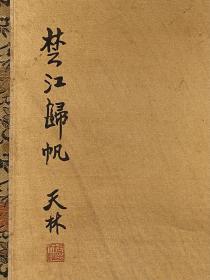 楚江歸帆
天林